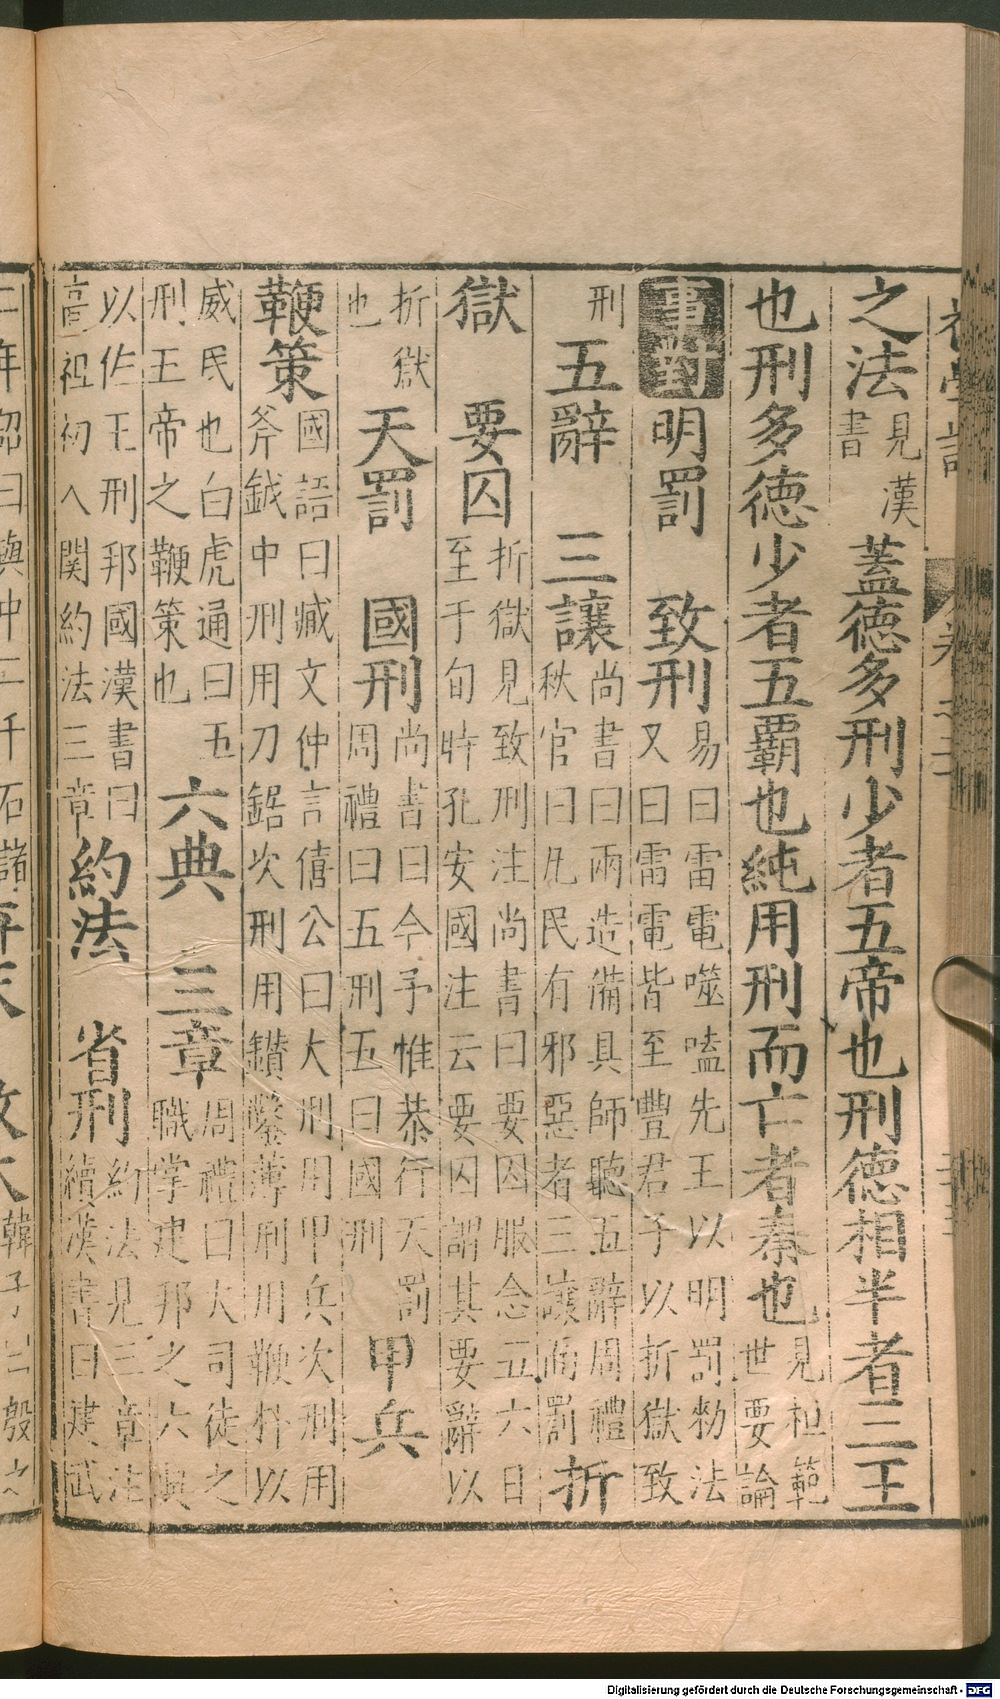 之法見漢書蓋德多刑少者五帝也刑德相半者三王
也刑多德少者五覇也純用刑而亡者秦也見袒範世要論
事對明罰 致刑易曰雷電噬嗑先王以明罰勑法又曰雷電皆至豐君子以折獄致
刑 五辭 三讓尚書曰兩造備具師聽五辭周禮秋官曰凡民有邪惡者三讓而罰折
獄 要囚折獄見致刑注尚書曰要囚服念五六日至于旬時孔安國注云要囚謂其要辭以
折獄也 天罰 國刑尚書曰今予惟恭行天罰周禮曰五刑五曰國刑甲兵
鞭策國語曰臧文仲言僖公曰大刑用甲兵次刑用斧鉞中刑用刀鋸次刑用鑚鑿薄刑用鞭朴以
威民也白虎通曰五刑王帝之鞭策也 六典 三章周禮曰大司徒之職掌建邦之六典
以佐王刑邦國漢書曰高祖初入関約法三章約法 省刑約法見三章注續漢書曰建武
Digitalisierung gefördert durch die Deutsche Forschungsgemeinschaft - DFG